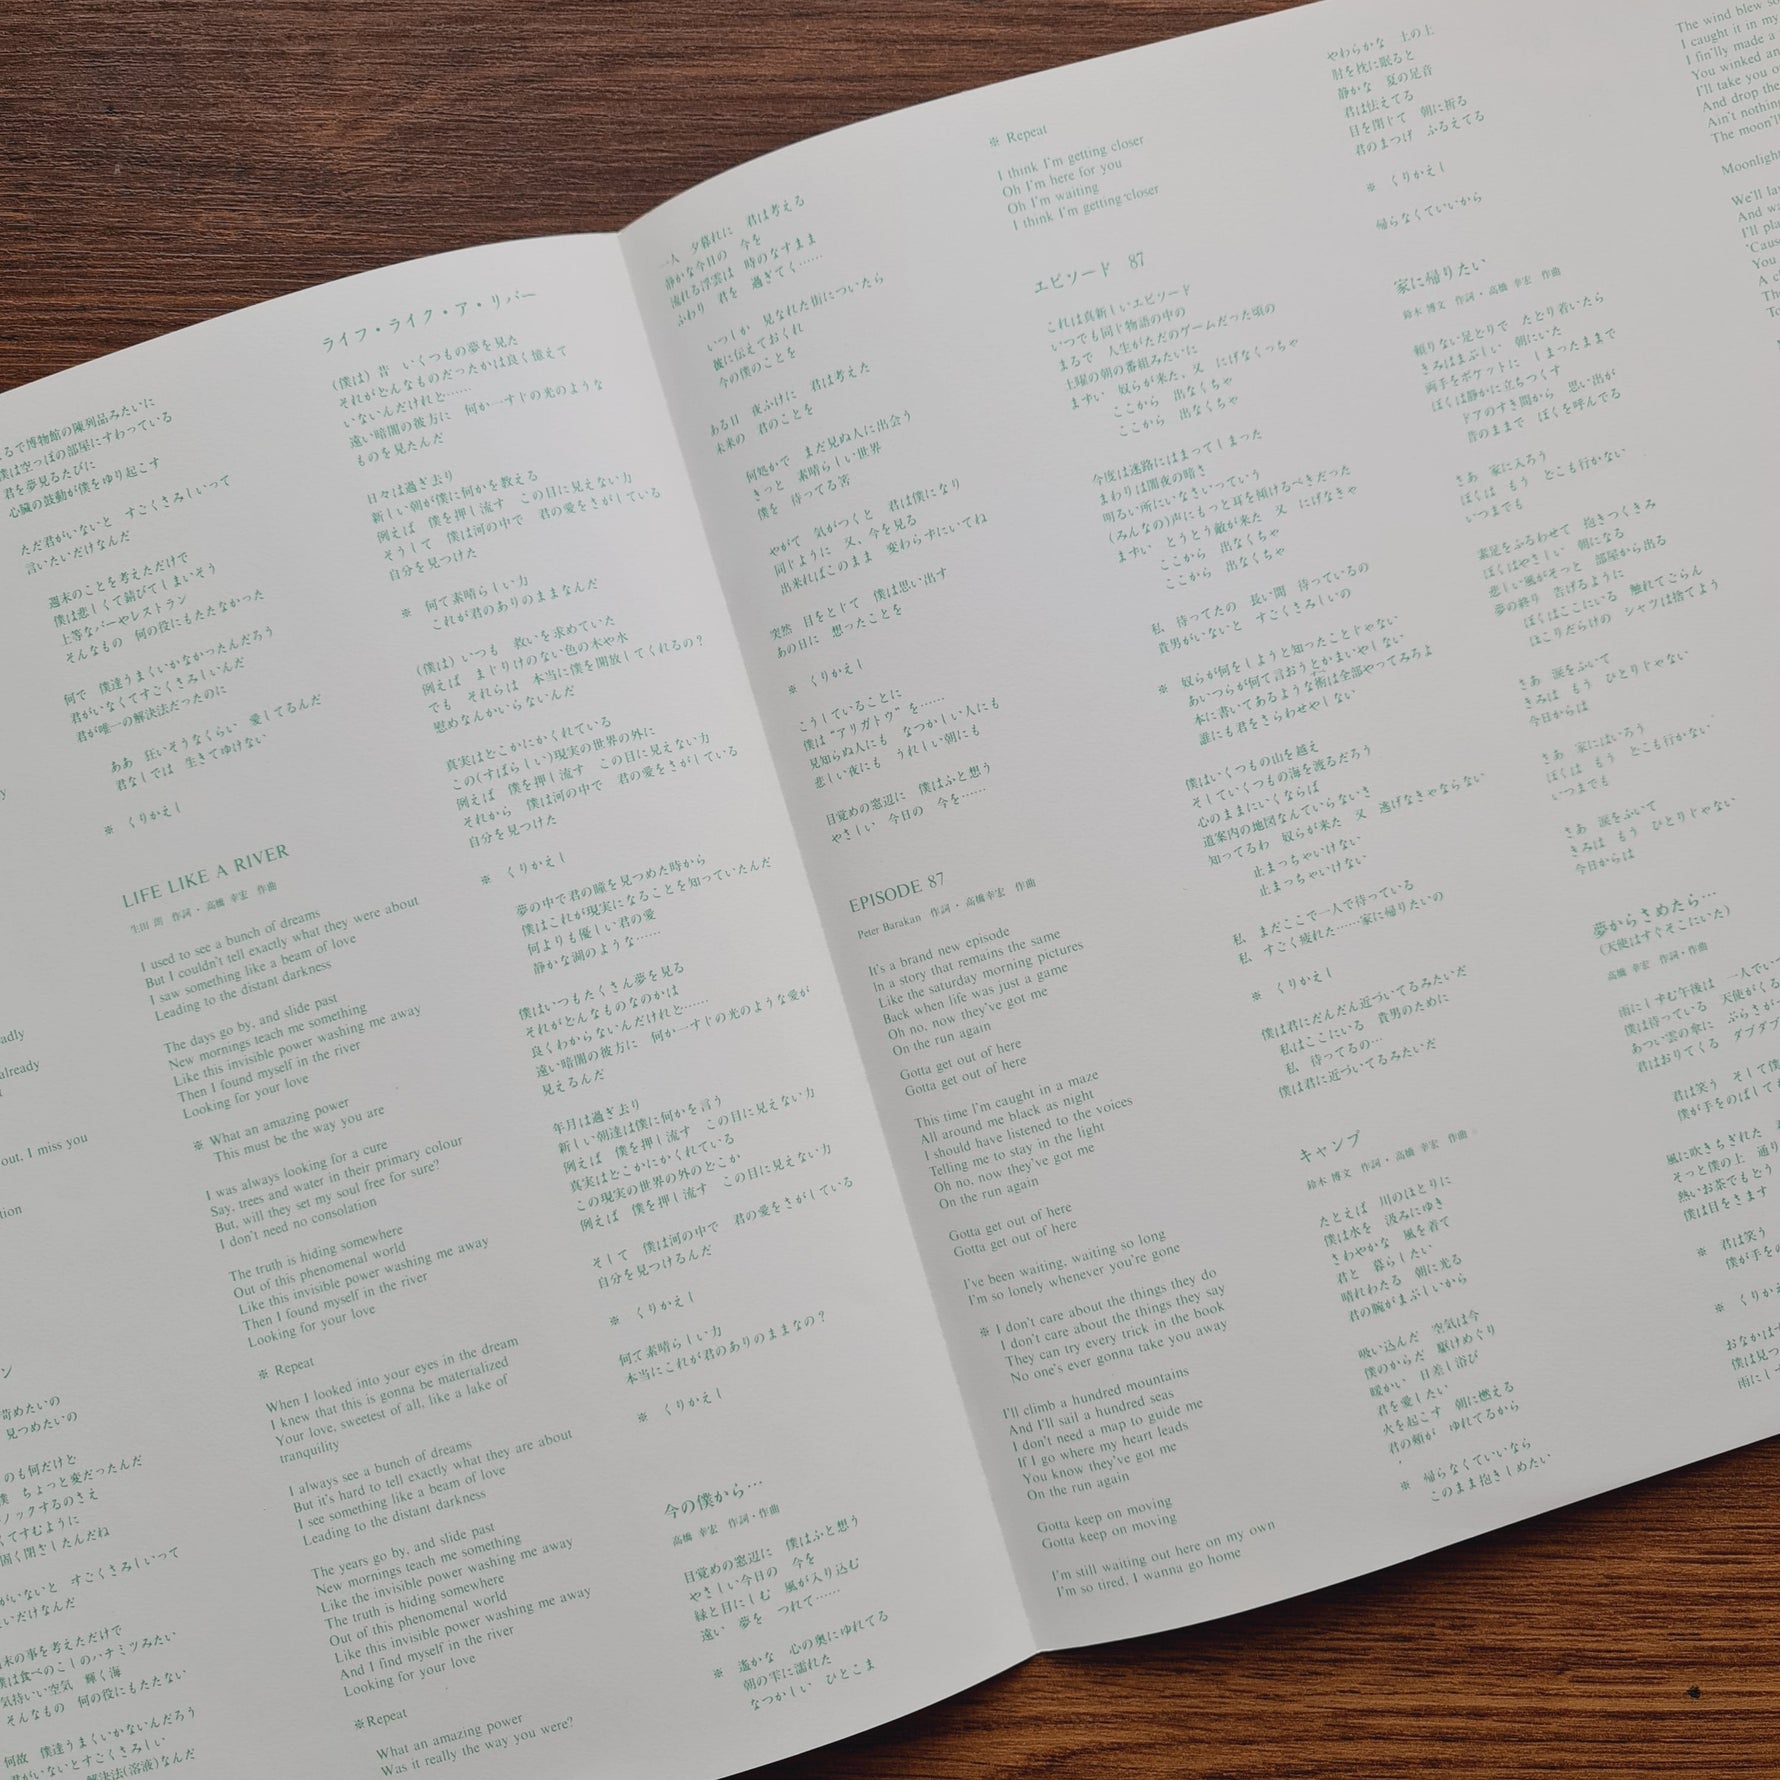 るで博物館の陳列品みたいに
僕は空っぽの部屋にすわっている
君を夢見るたびに
心臓の鼓動が僕をゆり起こす
ただ君がいないと すごくさみしいって
言いたいだけなんだ
週末のことを考えただけで
僕は悲しくて錆びてしまいそう
上等なバーやレストラン
そんなもの 何の役にもたたなかった
何で 僕達うまくいかなかったんだろう
君がいなくてすごくさみしいんだ
君が唯一の解決法だったのに
ああ 狂いそうなくらい 愛してるんだ
君なしでは 生きてゆけない
※ くりかえし
already
out, I miss you
苛めたいの
見つめたいの
のも何だけと
ちょっと変だったんだ
ノックするのさえ
くてすむように
固く閉ざしたんだね
がいないと すごくさみしいって
いだけなんだ
末の事を考えただけで
僕は食べのこしのハチミツみたい
気持いい空気 輝く海
そんなもの 何の役にもたたない
何故 僕達うまくいかないんだろう
君がいないとすごくさみしい
解決法(溶液)なんだ
LIFE LIKE A RIVER
生田 朗 作詞・高橋 幸宏 作曲
I used to see a bunch of dreams
But I couldn't tell exactly what they were about
I saw something like a beam of love
Leading to the distant darkness
The days go by, and slide past
New mornings teach me something
Like this invisible power washing me away
Then I found myself in the river
Looking for your love
※ What an amazing power
This must be the way you are
I was always looking for a cure
Say, trees and water in their primary colour
But, will they set my soul free for sure?
I don't need no consolation
The truth is hiding somewhere
Out of this phenomenal world
Like this invisible power washing me away
Then I found myself in the river
Looking for your love
※ Repeat
When I looked into your eyes in the dream
I knew that this is gonna be materialized
Your love, sweetest of all, like a lake of
tranquility
I always see a bunch of dreams
But it's hard to tell exactly what they are about
I see something like a beam of love
Leading to the distant darkness
The years go by, and slide past
New mornings teach me something
Like the invisible power washing me away
The truth is hiding somewhere
Out of this phenomenal world
Like this invisible power washing me away
And I find myself in the river
Looking for your love
※Repeat
What an amazing power
Was it really the way you were?
ライフ・ライク・ア・リバー
(僕は) 昔 いくつもの夢を見た
それがどんなものだったかは良く憶えて
いないんだけれと……
遠い暗闇の彼方に 何か一すじの光のような
ものを見たんだ
日々は過ぎ去り
新しい朝が僕に何かを教える
例えば 僕を押し流す この目に見えない力
そうして 僕は河の中で 君の愛をさがしている
自分を見つけた
※ 何て素晴らしい力
これが君のありのままなんだ
(僕は) いつも 救いを求めていた
例えば まじりけのない色の木や水
でも それらは 本当に僕を開放してくれるの?
慰めなんかいらないんだ
真実はとこかにかくれている
この(すばらしい)現実の世界の外に
例えば 僕を押し流す この目に見えない力
それから 僕は河の中で 君の愛をさがしている
自分を見つけた
※ くりかえし
夢の中で君の瞳を見つめた時から
僕はこれが現実になることを知っていたんだ
何よりも優しい君の愛
静かな湖のような……
僕はいつもたくさん夢を見る
それがとんなものなのかは
良くわからないんだけれと……
遠い暗闇の彼方に 何か一すじの光のような愛が
見えるんだ
年月は過ぎ去り
新しい朝達は僕に何かを言う
例えば 僕を押し流す この目に見えない力
真実はとこかにかくれている
この現実の世界の外のどこか
例えば 僕を押し流す この目に見えない力
そして 僕は河の中で 君の愛をさがしている
自分を見つけるんだ
※ くりかえし
何て素晴らしい力
本当にこれが君のありのままなの?
※ くりかえし
今の僕から…
高橋 幸宏 作詞・作曲
目覚めの窓辺に 僕はふと想う
やさしい今日の 今を
緑と目にしむ 風が入り込む
遠い 夢を つれて……
※ 遙かな 心の奥にゆれてる
朝の雫に濡れた
なつかしい ひとこま
一人 夕暮れに 君は考える
静かな今日の 今を
流れる浮雲は 時のなすまま
ふわり 君を 過ぎてく……
いつしか 見なれた街についたら
彼に伝えておくれ
今の僕のことを
ある日 夜ふけに 君は考えた
未来の 君のことを
何処かで まだ見ぬ人に出会う
きっと 素晴らしい世界
僕を 待ってる筈
やがて 気がつくと 君は僕になり
同じように 又、今を見る
出来ればこのまま 変わらずにいてね
突然 目をとじて 僕は思い出す
あの日に 想ったことを
※ くりかえし
こうしていることに
僕は“アリガトウ”を……
見知らぬ人にも なつかしい人にも
悲しい夜にも うれしい朝にも
目覚めの窓辺に 僕はふと想う
やさしい 今日の 今を……
EPISODE 87
Peter Barakan 作詞・高橋幸宏 作曲
It's a brand new episode
In a story that remains the same
Like the saturday morning pictures
Back when life was just a game
Oh no, now they've got me
On the run again
Gotta get out of here
Gotta get out of here
This time I'm caught in a maze
All around me black as night
I should have listened to the voices
Telling me to stay in the light
Oh no, now they've got me
On the run again
Gotta get out of here
Gotta get out of here
I've been waiting, waiting so long
I'm so lonely whenever you're gone
※ I don't care about the things they do
I don't care about the things they say
They can try every trick in the book
No one's ever gonna take you away
I'll climb a hundred mountains
And I'll sail a hundred seas
I don't need a map to guide me
If I go where my heart leads
You know they've got me
On the run again
Gotta keep on moving
Gotta keep on moving
I'm still waiting out here on my own
I'm so tired, I wanna go home
※ Repeat
I think I'm getting closer
Oh I'm here for you
Oh I'm waiting
I think I'm getting closer
エピソード 87
これは真新しいエピソード
いつでも同じ物語の中の
まるで 人生がただのゲームだった頃の
土曜の朝の番組みたいに
まずい 奴らが来た、又 にげなくっちゃ
ここから 出なくちゃ
ここから 出なくちゃ
今度は迷路にはまってしまった
まわりは闇夜の暗さ
明るい所にいなさいっていう
(みんなの)声にもっと耳を傾けるべきだった
まずい とうとう敵が来た 又 にげなきゃ
ここから 出なくちゃ
ここから 出なくちゃ
私 待ってたの 長い間 待っているの
貴男がいないと すごくさみしいの
※ 奴らが何をしようと知ったことじゃない
あいつらが何て言おうとかまいやしない
本に書いてあるような術は全部やってみろよ
誰にも君をさらわせやしない
僕はいくつもの山を越え
そしていくつもの海を渡るだろう
心のままにいくならば
道案内の地図なんていらないさ
知ってるわ 奴らが来た 又 逃げなきゃならない
止まっちゃいけない
止まっちゃいけない
私 まだここで一人で待っている
私 すごく疲れた……家に帰りたいの
※ くりかえし
僕は君にだんだん近づいてるみたいだ
私はここにいる 貴男のために
私 待ってるの…
僕は君に近づいてるみたいだ
キャンプ
鈴木 博文 作詞・高橋 幸宏 作曲
たとえば 川のほとりに
僕は水を 汲みにゆき
さわやかな 風を着て
君と 暮らしたい
晴れわたる 朝に光る
君の腕がまぶしいから
吸い込んだ 空気は今
僕のからだ 駆けめぐり
暖かい 日差し浴び
君を愛したい
火を起こす 朝に燃える
君の頬が ゆれてるから
※ 帰らなくていいなら
このまま抱きしめたい
やわらかな 土の上
肘を枕に眠ると
静かな 夏の足音
君は怯えてる
目を閉じて 朝に祈る
君のまつげ ふるえてる
※ くりかえし
帰らなくていいから
家に帰りたい
鈴木 博文 作詞・高橋 幸宏 作曲
頼りない足とりで たとり着いたら
きみはまぶしい 朝にいた
両手をポケットに しまったままで
ぼくは静かに立ちつくす
ドアのすき間から 思い出が
昔のままで ぼくを呼んでる
さあ 家に入ろう
ぼくは もう とこも行かない
いつまでも
素足をふるわせて 抱きつくきみ
ぼくはやさしい 朝になる
悲しい風がそっと 部屋から出る
夢の終り 告げるように
ぼくはここにいる 触れてごらん
ほこりだらけの シャツは捨てよう
さあ 涙をふいて
きみは もう ひとりじゃない
今日からは
さあ 家にはいろう
ぼくは もう とこも行かない
いつまでも
さあ 涙をふいて
きみは もう ひとりじゃない
今日からは
夢からさめたら…
(天使はすぐそこにいた)
高橋 幸宏 作詞・作曲
雨にしずむ午後は 一人でい
僕は待っている 天使がくる
あつい雲の傘に ぶらさが
君はおりてくる ダブダブ
君は笑う そして僕
僕が手をのばして
風に吹きちぎれた
そっと僕の上 通り
熱いお茶でもどう
僕は目をさます
※ 君は笑う
僕が手を
※ くりか
おなかは
僕は見つ
雨にし
The wind blew so
I caught it in my
I fin'lly made a
You winked an
I'll take you o
And drop the
Ain't nothing
The moon'll
Moonlight
We'll la
And wa
I'll pla
'Caus
You
A c
Th
To